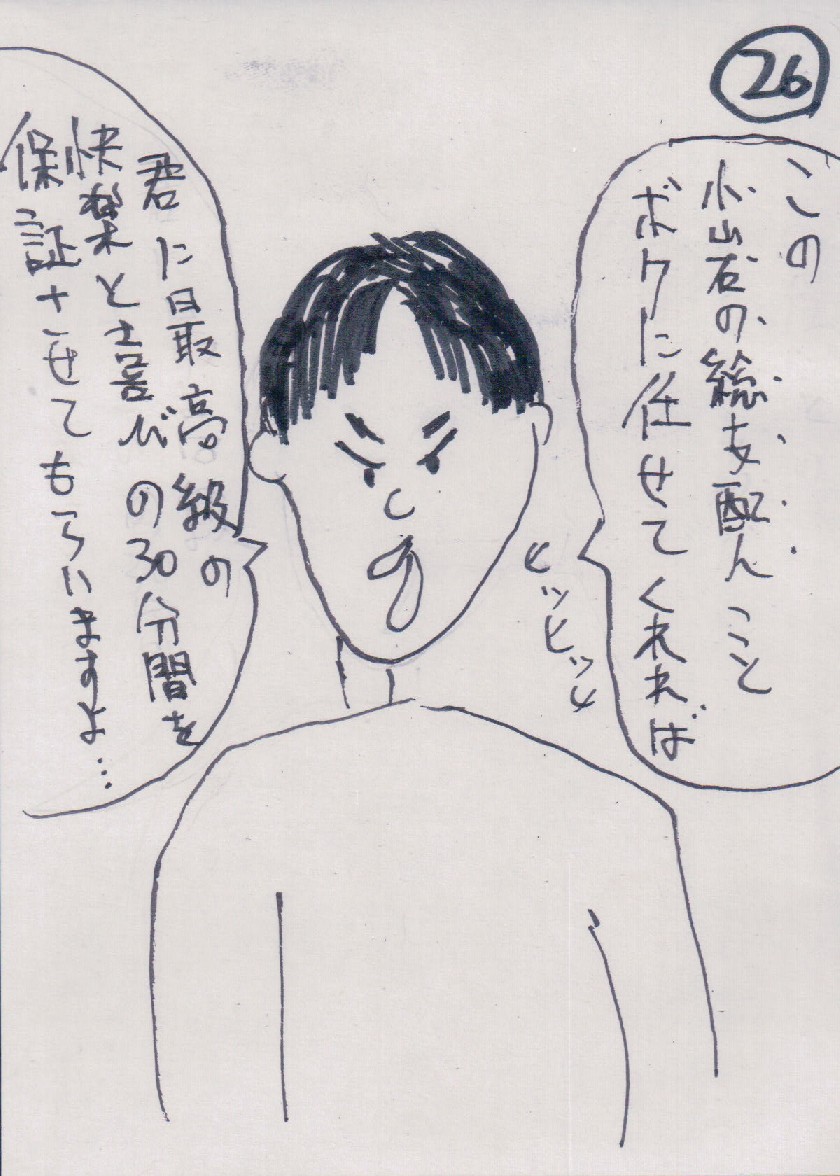 26
この
小山石の総支配人こと
ボクに任せてくれれば
ヒッヒッヒ
君に最高級の
快楽と喜びの30分間を
保証させてもらいますよ…